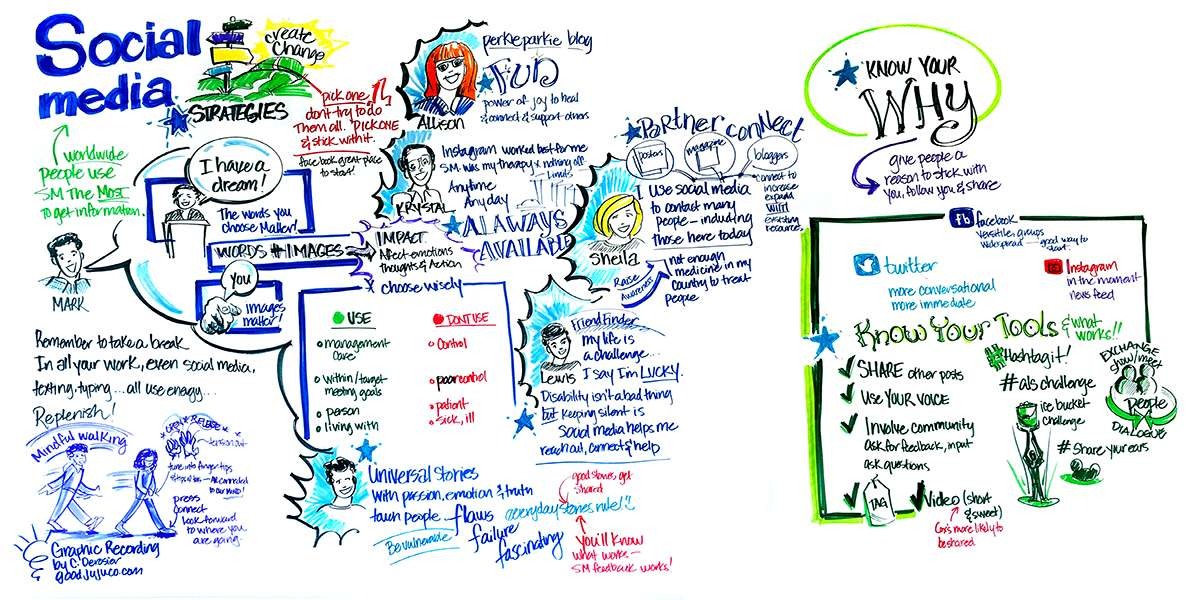 Social
media
create
change
STRATEGIES
pick one
don't try to do
them all. PICK ONE
& stick with it.
face book great place
to start!
worldwide
people use
SM The Most
to get information.
MARK
I have a
dream!
The words you
choose Matter!
WORDS # 1 IMAGES
IMPACT
Affect emotions
Thoughts & Action
YOU
images
matter!
choose wisely
USE
management
care
within/target
meeting goals
person
living with
DON'T USE
control
poor control
patient
sick, ill
Remember to take a break
In all your work, even social media,
texting, typing... all use energy...
Replenish!
Mindful walking
OPEN & RELEASE
tension out
tune into finger tips
to our MIND!
press
connect
look forward
to where you
are going.
Graphic Recording
by C. Derosier
goodjujuco.com
ALLISON
perkieparkie blog
FUN
power of joy to heal
& connect & support others
KRYSTAL
Instagram worked best for me
S.M. was my therapy & nothing off
limits
Anytime
Any day
ALAWAYS
AVAILABLE
Partner connect
posters
magazine
bloggers
connect to
increase
expand
with
existing
resources.
Sheila
I use social media
to contact many
people — including
those here today
Raise
Awareness
not enough
medicine in my
country to treat
people
Lewis
Friendfinder
my life is
a challenge...
I say I'm LUCKY.
Disability isn't a bad thing
but keeping silent is
Social media helps me
reach out, connect & help
Universal stories
with passion, emotion & truth
touch people...flaws
Be vulnerable
failure
fascinating
everyday stories rule!
good stories get
shared
You'll know
what works —
SM feedback works!
KNOW YOUR
WHY
give people a
reason to stick with
you, follow you & share
fb
facebook
versitile, groups
widespread — good way to
start.
twitter
more conversational
more immediate
Instagram
in the moment
news feed
Know Your Tools & what
works!!
SHARE other posts
USE YOUR VOICE
Involve community
ask for feedback, input
ask questions
TAG
Video (short
& sweet)
more likely to
be shared
#Hashtag it!
#als challenge
ice bucket
challenge
#Share your ears
EXCHANGE
show/meet
People
DIALOGUE